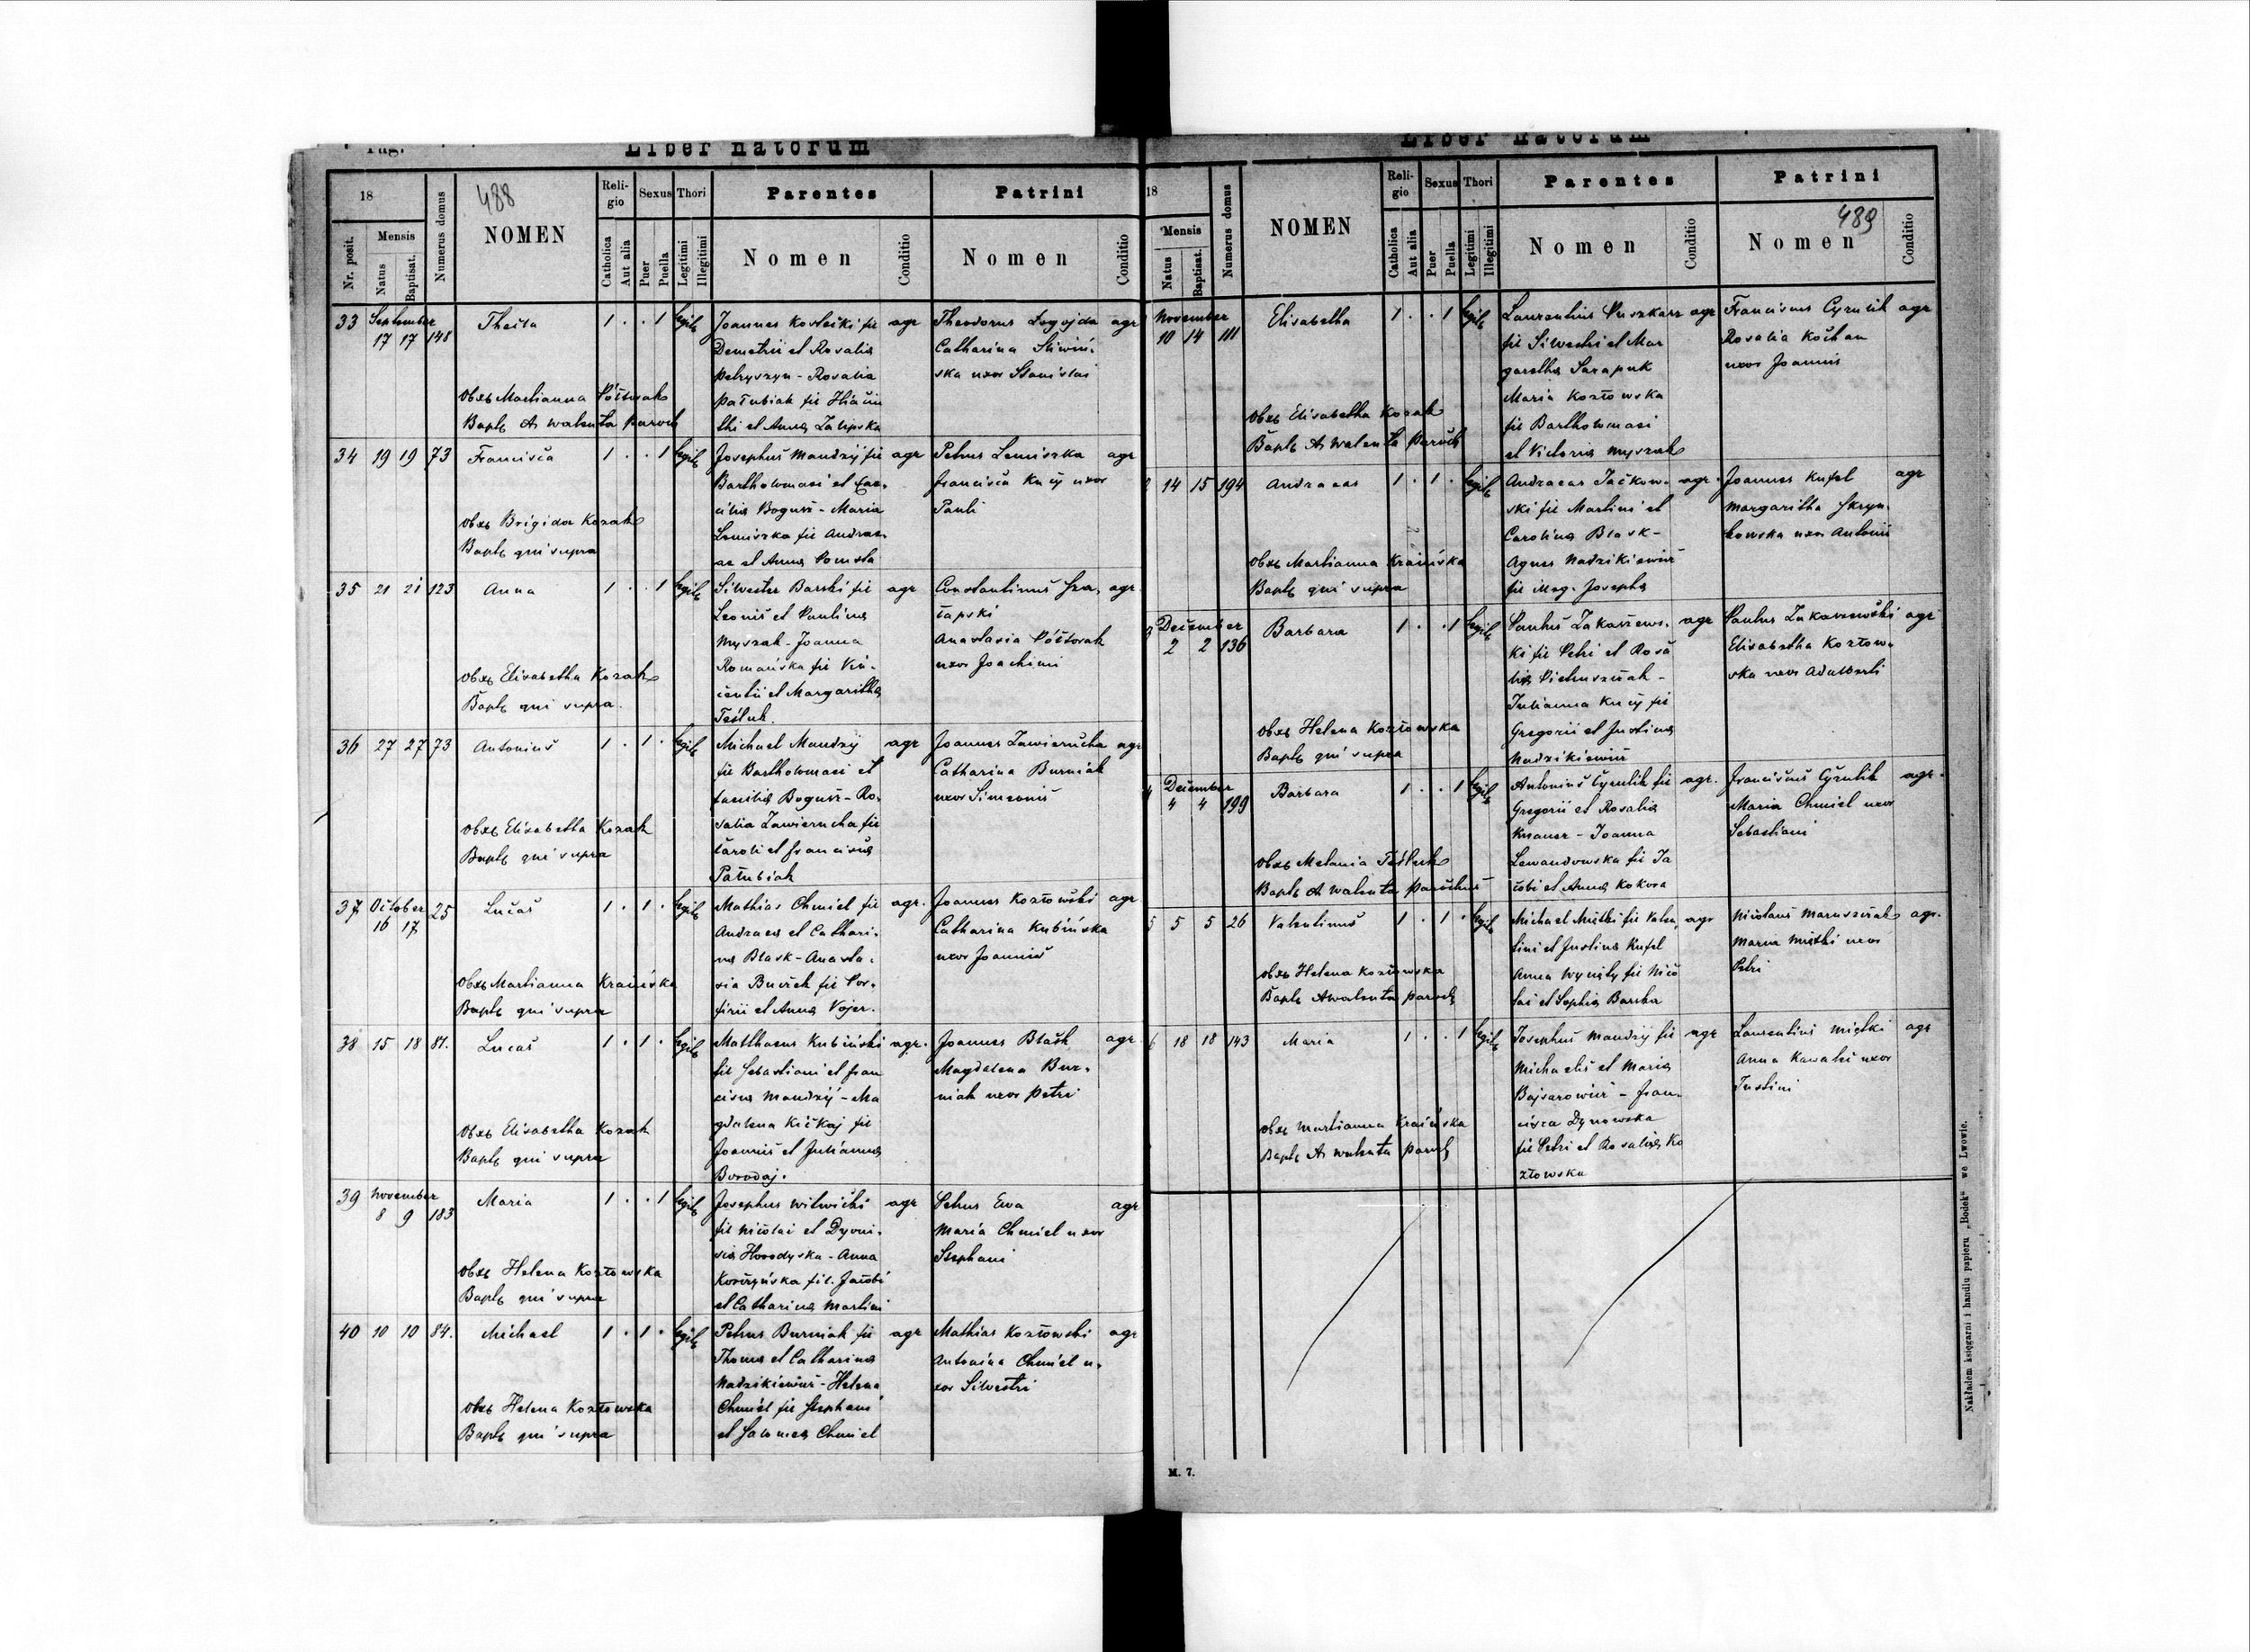 Pag.
Liber natorum
18
Numerus domus
488
NOMEN
Reli-
gio
Sexus
Thori
Parentes
Patrini
Nr. posit.
Mensis
Natus
Baptisat.
Catholica
Aut alia
Puer
Puella
Legitimi
Illegitimi
Nomen
Conditio
Nomen
Conditio
33 September Thecla 1 . . 1 legit Joannes fil agr Theodorus agr
17 17 148 Demetrii et Rosalia Catharina
Petryszyn - Rosalia ska uxor Stanislai
Obst Martianna Półtorak Patubiak fil Hiacin
Bapt A Walenta Paroch thi et Anna Zalipska
34 19 19 73 Francisca 1 . . 1 legit Josephus Mandzij fil agr Petrus Lemiszka agr
Bartholomaei et Cae- Francisca Kucij uxor
cilia Bogusz - Maria Pauli
Obst Brigida Kozak Lemiszka fil Andrae-
Bapt qui supra ae et Anna
35 21 21 123 Anna 1 . . 1 legit Silvester Barski fil agr Constantinus agr
Leonis et Paulina tapski
Myszak - Joanna Anastasia Półtorak
Romańska fil Vin- uxor Joachimi
Obst Elisabetha Kozak centii et Margaritha
Bapt qui supra. Teśluk.
36 27 27 73 Antonius 1 . 1 . legit Michael Mandzij agr Joannes Zawierucha agr
fil Bartholomaei et Catharina Burniak
Caecilia Bogusz - Ro- uxor Simeonis
Obst Elisabetha Kozak salia Zawierucha fil
Bapt qui supra Caroli et Francisca
Patubiak
37 October 25 Lucas 1 . 1 . legit Mathias Chmiel fil agr. Joannes Kozłowski agr
16 17 Andraea et Cathari- Catharina Kubińska
na Blask - Anasta- uxor Joannis
Obst Martianna Kraińska sia fil Por-
Bapt qui supra firii et Anna
38 15 18 81. Lucas 1 . 1 . legit Matthaeus Kubiński agr. Joannes Błask agr
fil Sebastiani et Fran Magdalena Bur-
cisca Mandzij - Ma niak uxor Petri
Obst Elisabetha Kozak gdalena Kiczkaj fil
Bapt qui supra Joannis et Julianna
Borodaj.
39 November Maria 1 . . 1 legit Josephus Witwicki agr Petrus Ewa agr
8 9 183 fil Nicolai et Dyoni- Maria Chmiel uxor
sia Horodyska - Anna Stephani
Obst Helena Kozłowska fil. Jacobi
Bapt qui supra et Catharina Martini
40 10 10 84. Michael 1 . 1 . legit Petrus Burniak fil agr Mathias Kozłowski agr
Thoma et Catharina Antonina Chmiel u-
Nadzikiewicz - Helena xor Silvestri
Obst Helena Kozłowska Chmiel fil Stephani
Bapt qui supra et Salomea Chmiel
Liber natorum
18
Numerus domus
NOMEN
Reli-
gio
Sexus
Thori
Parentes
Patrini
489
Mensis
Natus
Baptisat.
Catholica
Aut alia
Puer
Puella
Legitimi
Illegitimi
Nomen
Conditio
Nomen
Conditio
November Elisabetha 1 . . 1 legit Laurentius Puszkarz agr Franciscus Cyrulik agr
10 14 111 fil Silvestri et Mar Rosalia Kochan
garetha Sarapuk uxor Joannis
Maria Kozłowska
Obst Elisabetha Kozak fil Bartholomaei
Bapt A Walenta Paroch et Victoria Myszak
14 15 194 Andraeas 1 . 1 . legit Andraeas Jackow- agr. Joannes Kufel agr
ski fil Martini et Margaritha Skryn-
Carolina Blask - kowska uxor Antonii
Obst Martianna Kraińska Agnes Nadzikiewicz
Bapt qui supra fil Mag. Josepha
December Barbara 1 . . 1 legit Paulus Zakaszews- agr Paulus Zakaszewski agr
2 2 136 ki fil Petri et Rosa Elisabetha Kozłow-
lia Pietruszczak - ska uxor Adalberti
Julianna Kucij fil
Obst Helena Kozłowska Gregorii et Justina
Bapt qui supra Nadzikiewicz
December Barbara 1 . . 1 legit Antonius Cyrulik fil agr. Franciscus Cyrulik agr.
4 4 199 Gregorii et Rosalia Maria Chmiel uxor
Knauer - Joanna Sebastiani
Obst Melania Teśluk Lewandowska fil Ja
Bapt A Walenta Parochus cobi et Anna Kokora
5 5 5 26 Valentinus 1 . 1 . legit Michael Miętki fil Valen agr Nicolaus Maruszczak agr.
tini et Justina Kufel Maria Miętki uxor
Obst Helena Kozłowska Anna fil Nico Petri
Bapt A Walenta Paroch lai et Sophia Barska
6 18 18 143 Maria 1 . . 1 legit Josephus Mandzij fil agr Laurentius Miętki agr
Michaelis et Maria Anna Kawalec uxor
Bajsarowicz - Fran- Justini
Obst Martianna Kraińska cisca Dynowska
Bapt A Walenta Paroch fil Petri et Rosalia Ko
złowska
M. 7.
Nakładem księgarni i handlu papieru „Bodek“ we Lwowie.